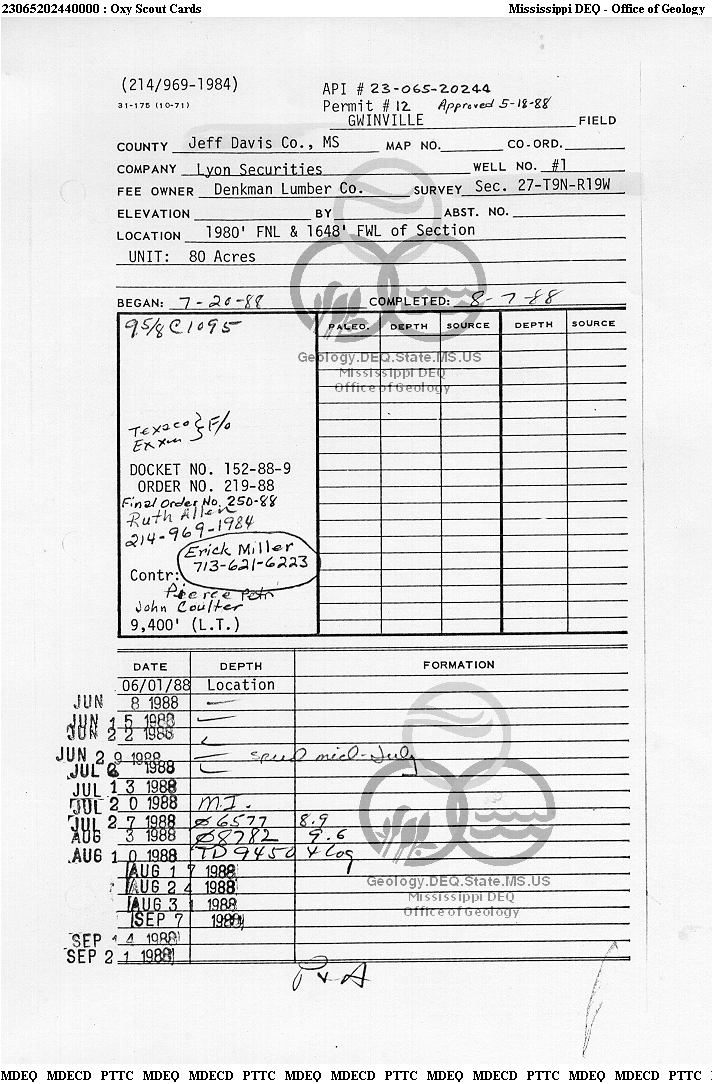 23065202440000 : Oxy Scout Cards Mississippi DEQ - Office of Geology
(214/969-1984) API # 23-065-20244
31-175 (10-71) Permit # 12 Approved 5-18-88
GWINVILLE FIELD
COUNTY Jeff Davis Co., MS MAP NO. CO-ORD.
COMPANY Lyon Securities WELL NO. #1
FEE OWNER Denkman Lumber Co. SURVEY Sec. 27-T9N-R19W
ELEVATION BY ABST. NO.
LOCATION 1980' FNL & 1648' FWL of Section
UNIT: 80 Acres
BEGAN: 7-20-88 COMPLETED: 8-7-88
9 5/8 C 1095
PALEO. DEPTH SOURCE DEPTH SOURCE
Geology.DEQ.State.MS.US
Mississippi DEQ
Office of Geology
Texaco } F/o
Exxon
DOCKET NO. 152-88-9
ORDER NO. 219-88
Final Order No. 250-88
Ruth Allen
214-969-1984
Erick Miller
713-621-6223
Contr:
Pierce Petr
John Coulter
9,400' (L.T.)
DATE DEPTH FORMATION
06/01/88 Location
JUN 8 1988
JUN 15 1988
JUN 22 1988
JUN 29 1988 spud mid-July
JUL 6 1988
JUL 13 1988
JUL 20 1988 M.I.
JUL 27 1988 Ø 6577 8.9
AUG 3 1988 Ø 8782 9.6
AUG 10 1988 TD 9450 + Log
AUG 17 1988
AUG 24 1988
AUG 31 1988
SEP 7 1988
SEP 14 1988
SEP 21 1988
Geology.DEQ.State.MS.US
Mississippi DEQ
Office of Geology
P+A
MDEQ MDECD PTTC MDEQ MDECD PTTC MDEQ MDECD PTTC MDEQ MDECD PTTC MDEQ MDECD PTTC